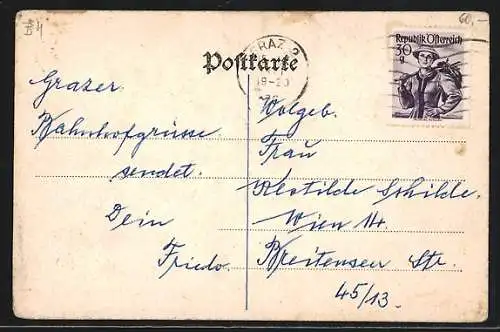 60,-
Republik Österreich
30
g
GRAZ 2
19-20
Postkarte
Grazer
Bahnhofgrüsse
sendet
Dein
Friedo.
Wolgeb.
Frau
Klotilde Schilde.
Wien 14.
Breitenseer Str.
45/13.